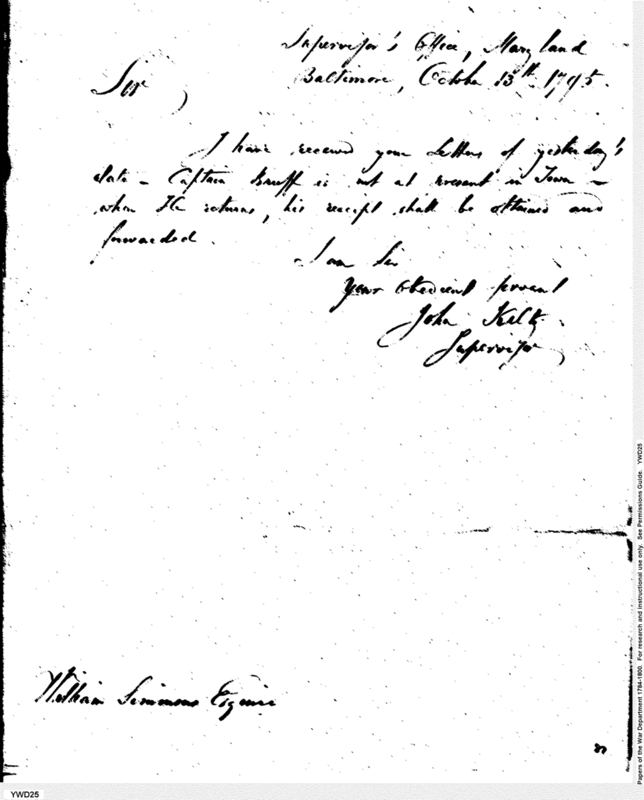 Supervisor's Office, Maryland
Baltimore, October 13th 1795.
Sir,
I have received your Letters of yesterday's
date - Captain Bruff is not at present in Town -
when He returns, his receipt shall be obtained and
forwarded.
I am Sir
Your Obedient servant
John Kilty.
Supervisor
William Simmons Esquire
Papers of the War Department 1784-1800. For research and instructional use only. See Permissions Guide. YWD25
YWD25